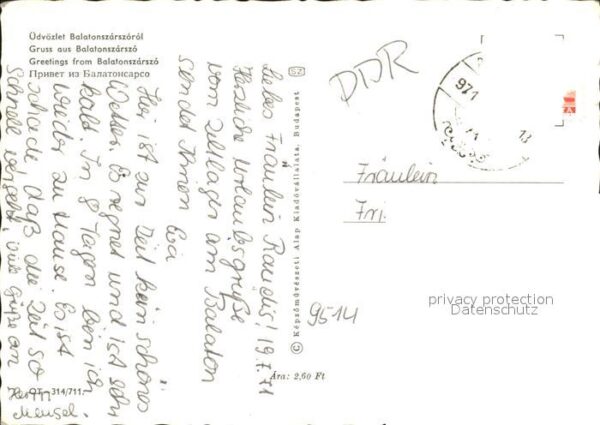 Üdvözlet Balatonszárszóról
Gruss aus Balatonszárszó
Greetings from Balatonszárszó
Привет из Балатонсарсо
Liebes Fräulein Raudis! 19.7.71
Herzliche Urlaubsgrüße
vom Zeltlager am Balaton
sendet Ihnen Eva
Hier ist zur Zeit kein schönes
Wetter. Es regnet und ist sehr
kalt. In 8 Tagen bin ich
wieder zu Hause. Es ist
schade daß die Zeit so
schnell vergeht, viele Grüße an
Herrn
Mengel.
314/711
SZ
© Képzőművészeti Alap Kiadóvállalata, Budapest
Ára: 2,60 Ft
DDR
971
13
Fräulein
Fri.
9514
privacy protection
Datenschutz